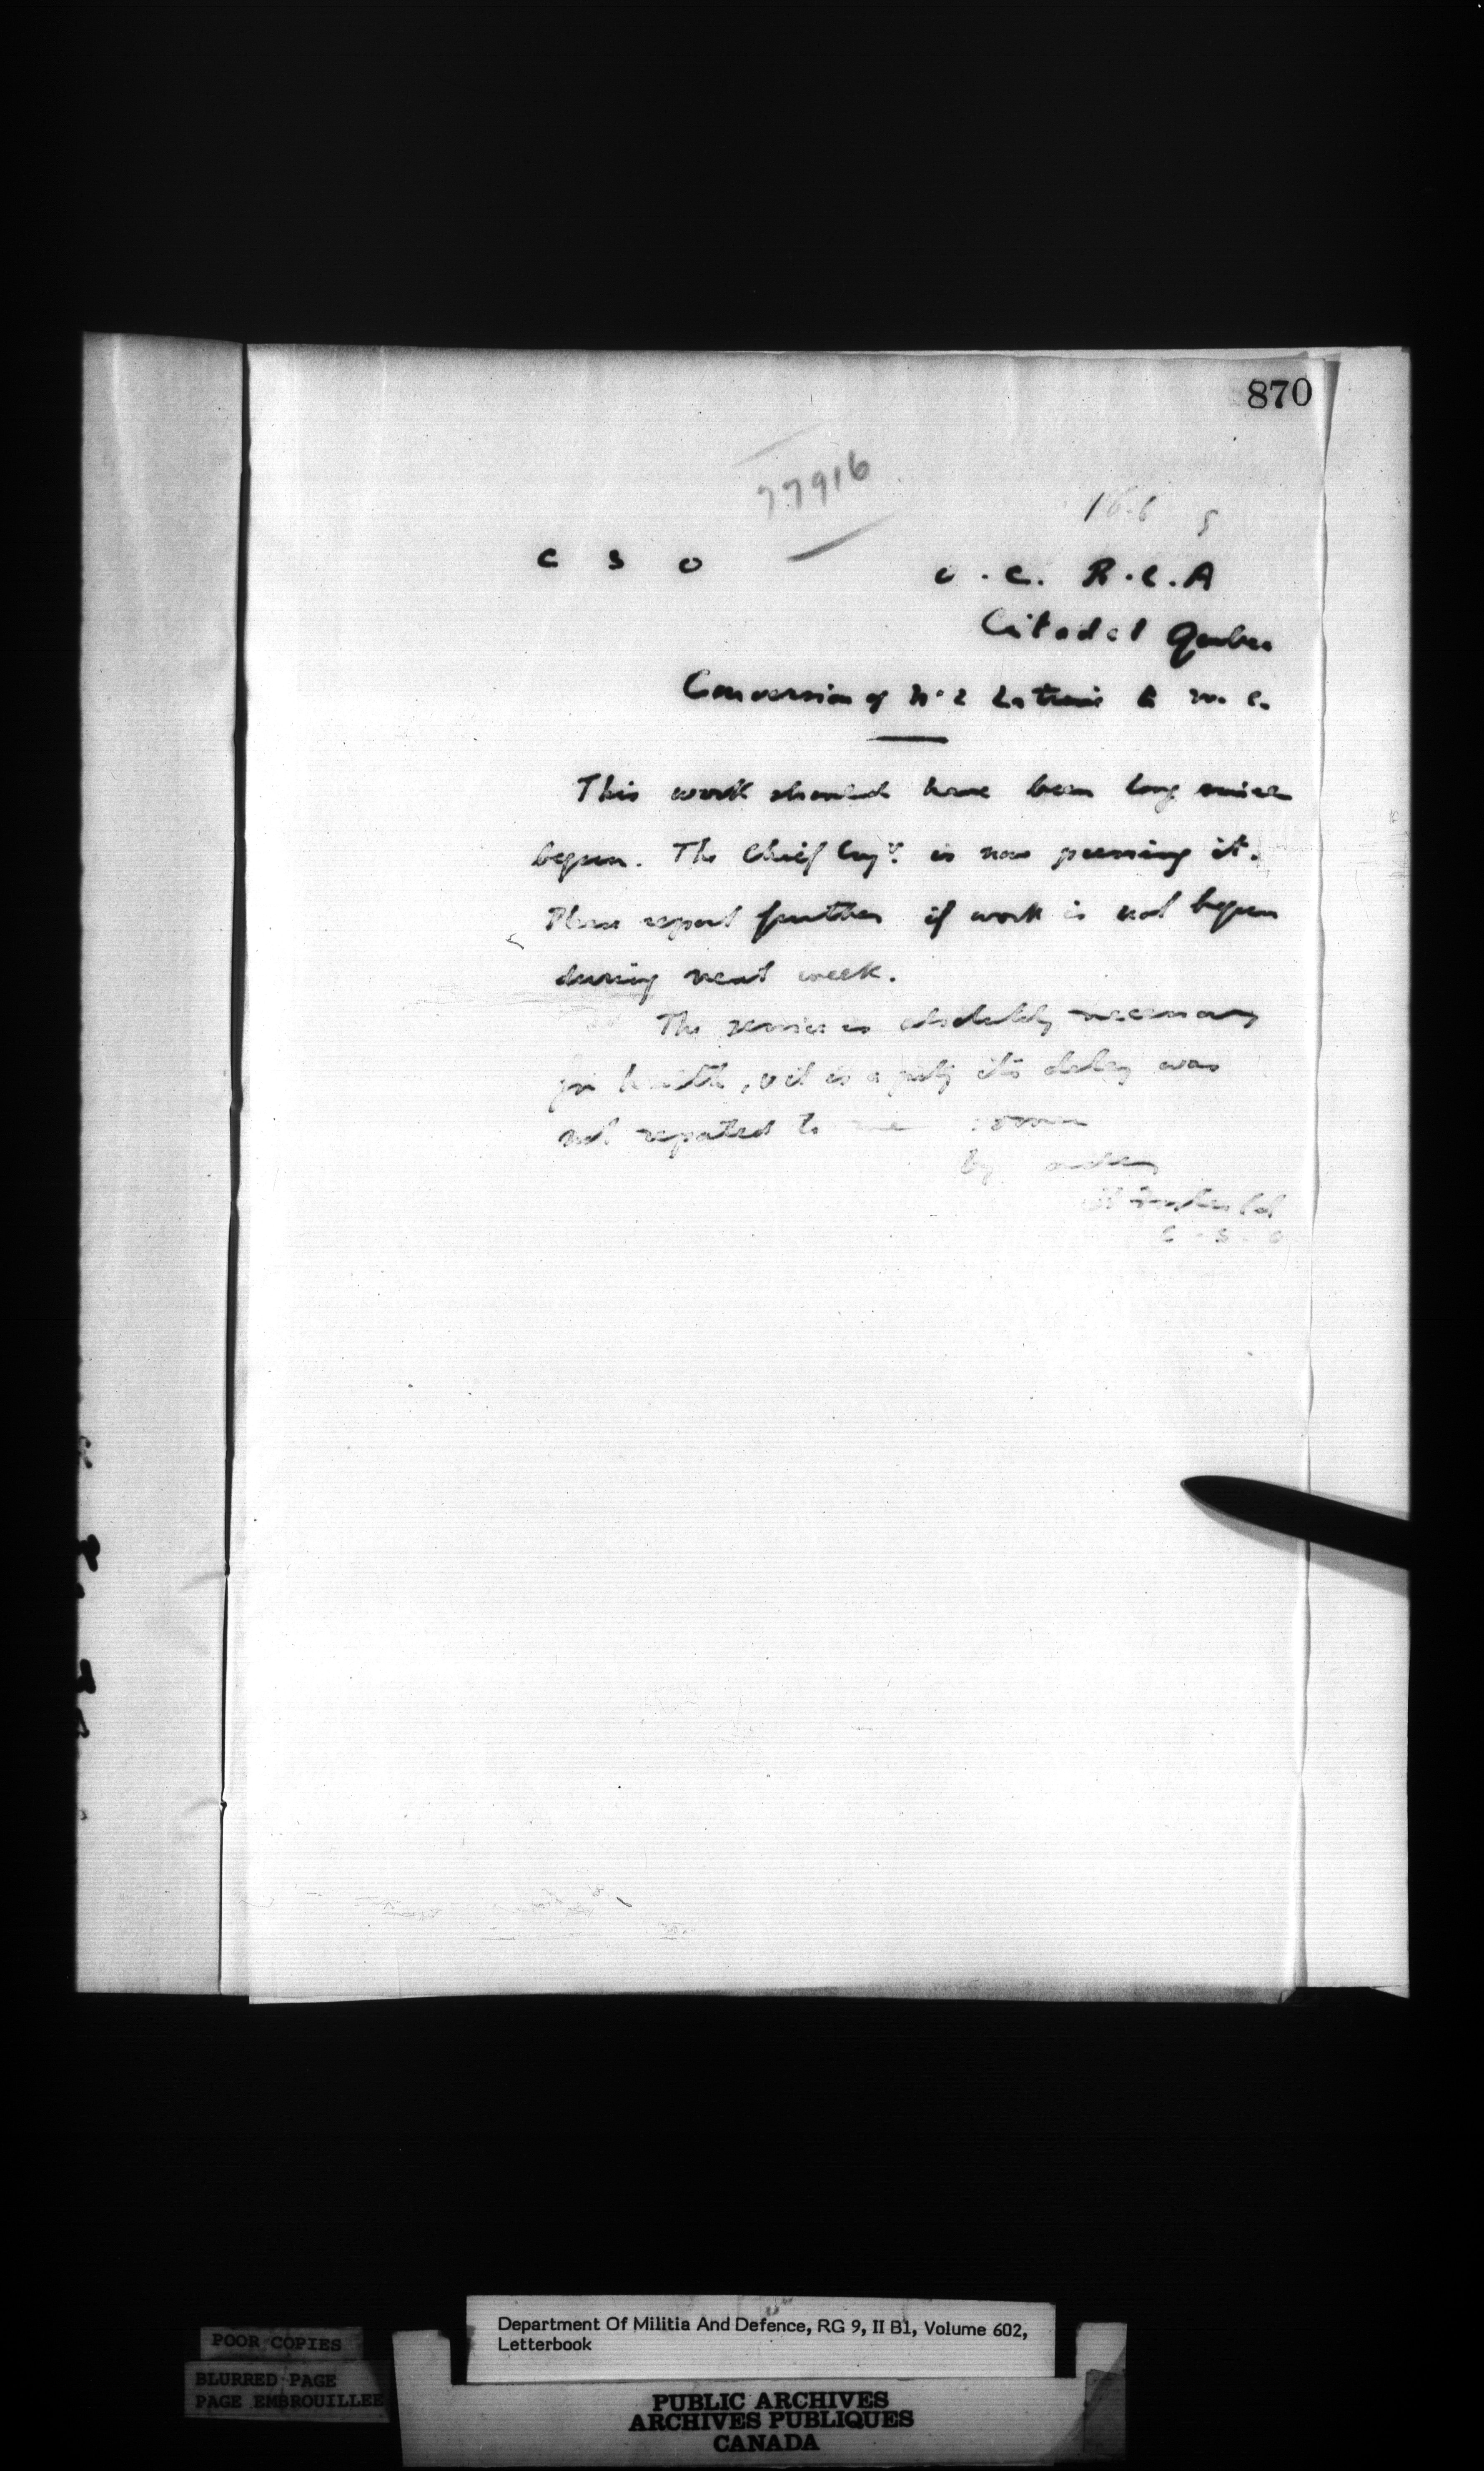 870
77916
16-6
C S O
O. C. R.C.A
Citadel Quebec
Conversion of No 2 Latrine to W. C.
This work should have been long since
begun. The Chief Engr. is now pressing it.
Please report further if work is not begun
during next week.
The service is absolutely necessary
for health, & it is a pity its delay was
not reported to me sooner
by order
Col
C - S - O
Department Of Militia And Defence, RG 9, II B1, Volume 602,
Letterbook
POOR COPIES
BLURRED PAGE
PAGE EMBROUILLEE
PUBLIC ARCHIVES
ARCHIVES PUBLIQUES
CANADA